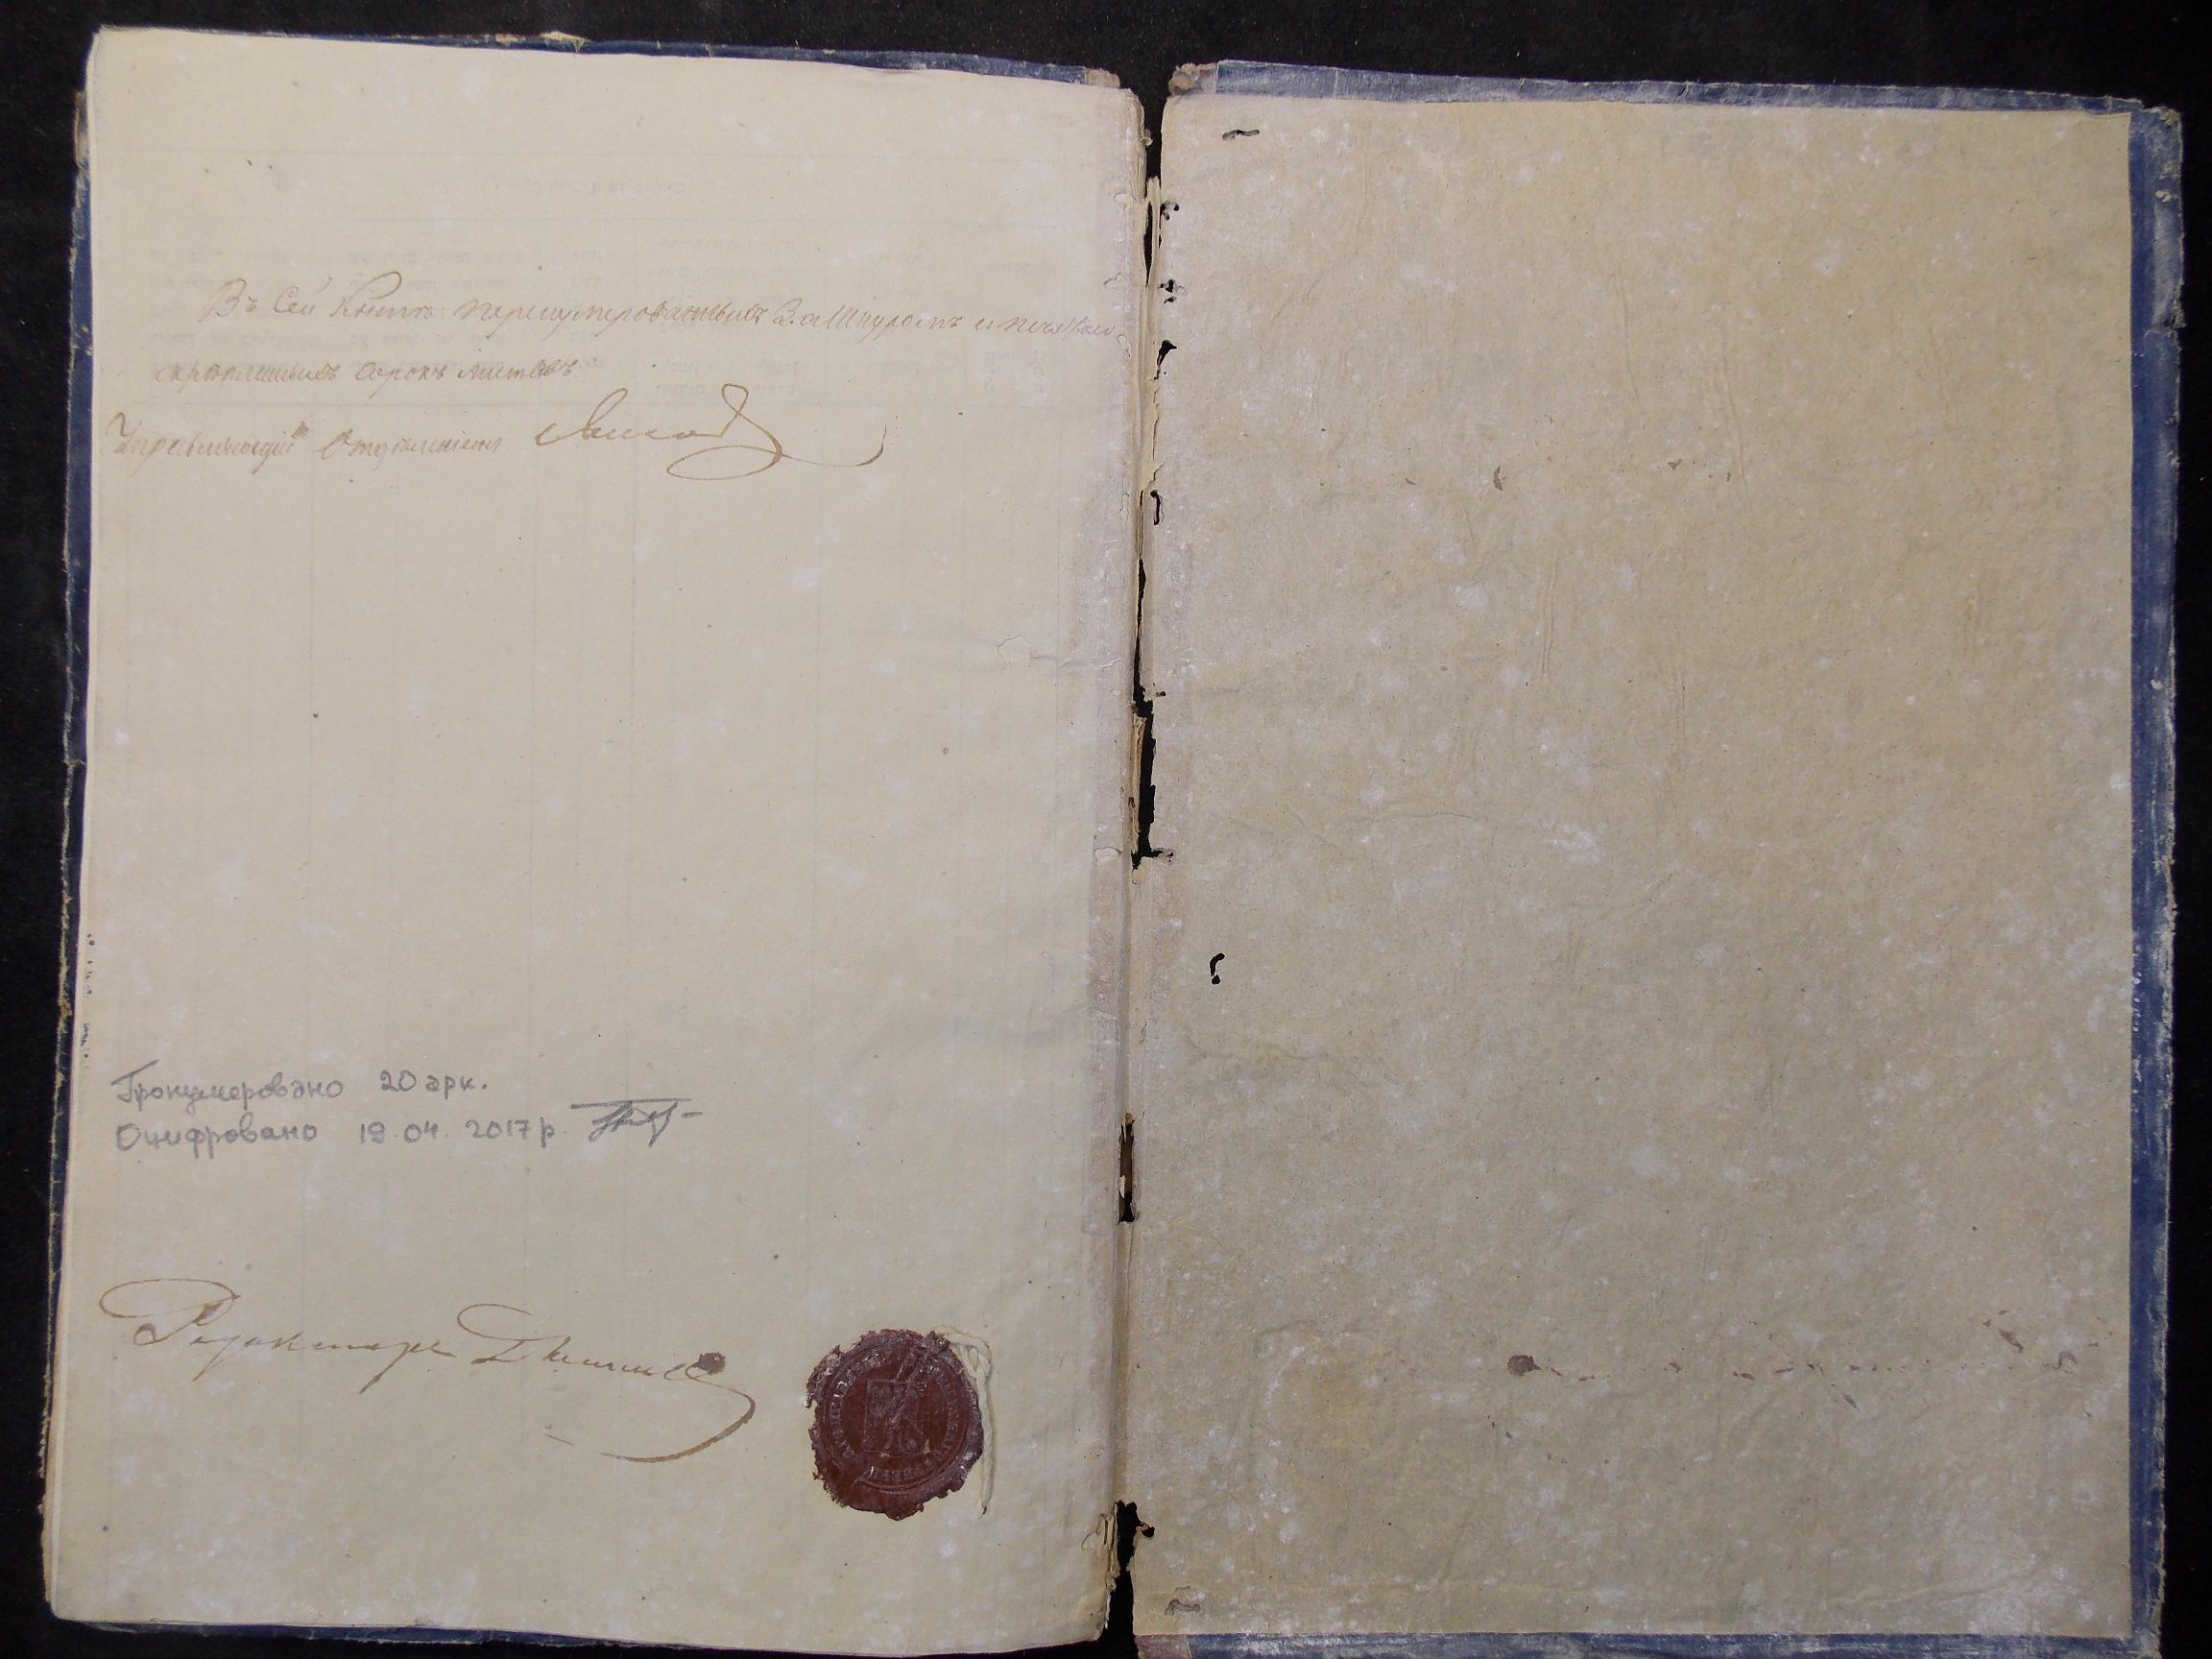 Въ Сей Книгѣ перенумерованныхъ За Шнуромъ и печатью
скрѣпленныхъ сорокъ листовъ.
Управляющій Отдѣленіемъ
Пронумеровано 20 арк.
Оцифровано 19.04.2017 р.
Редакторъ